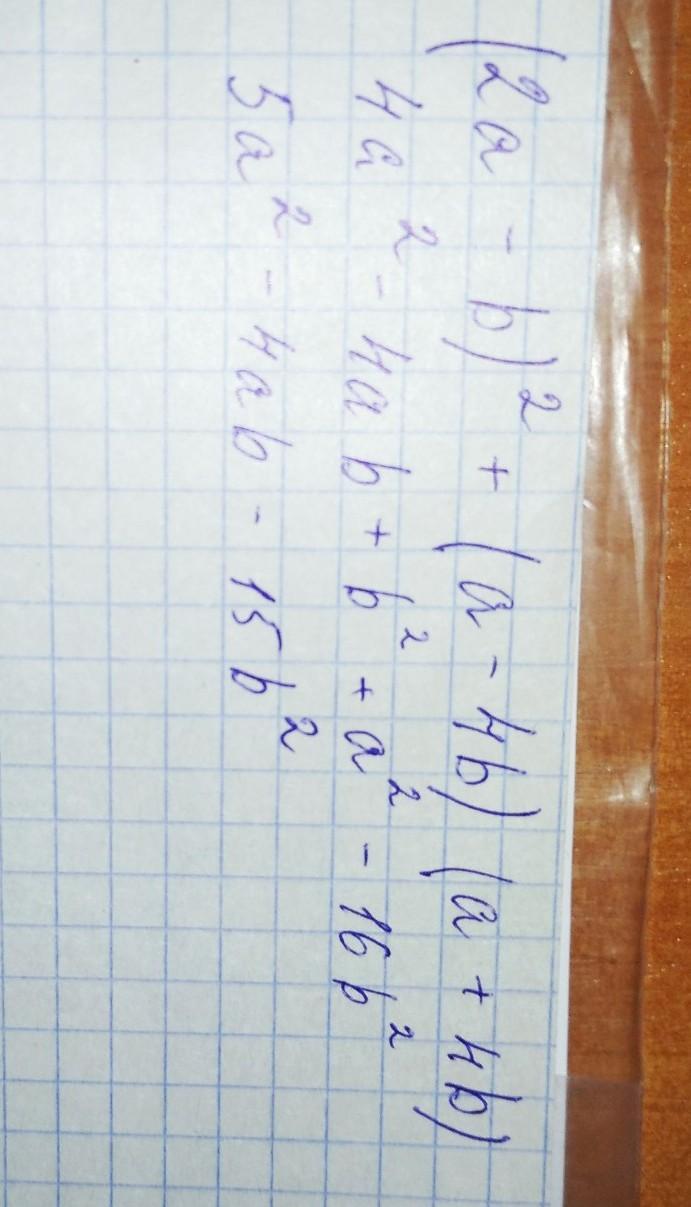 (2a - b)² + (a - 4b)(a + 4b)
4a² - 4ab + b² + a² - 16b²
5a² - 4ab - 15b²